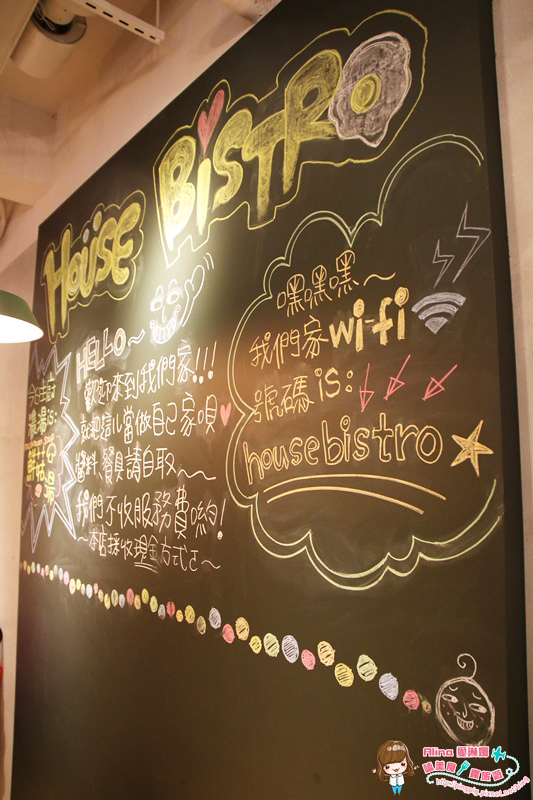 HOUSE BISTRO
HELLO~
歡迎來到我們家!!!
就把這儿當做自己家唄
醬料、餐具請自取~~
我們不收服務費喲!
~本店採收現金方式ㄛ~
嘿嘿嘿~
我們家wi-fi
號碼is:
housebistro
濃湯is:
鮮菇湯
Alina 愛淋團